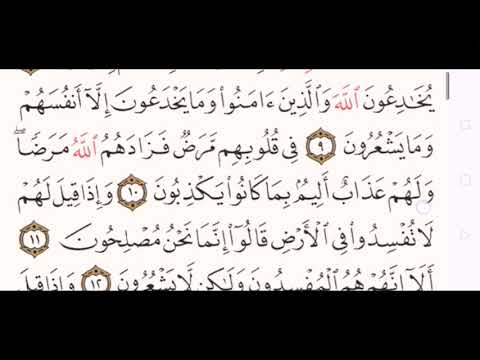 يُخَـٰدِعُونَ ٱللَّهَ وَٱلَّذِينَ ءَامَنُوا۟ وَمَا يَخْدَعُونَ إِلَّآ أَنفُسَهُمْ
وَمَا يَشْعُرُونَ ٩ فِى قُلُوبِهِم مَّرَضٌ فَزَادَهُمُ ٱللَّهُ مَرَضًا ۖ
وَلَهُمْ عَذَابٌ أَلِيمٌۢ بِمَا كَانُوا۟ يَكْذِبُونَ ١٠ وَإِذَا قِيلَ لَهُمْ
لَا تُفْسِدُوا۟ فِى ٱلْأَرْضِ قَالُوٓا۟ إِنَّمَا نَحْنُ مُصْلِحُونَ ١١
أَلَآ إِنَّهُمْ هُمُ ٱلْمُفْسِدُونَ وَلَـٰكِن لَّا يَشْعُرُونَ ١٢ وَإِذَا قِيلَ